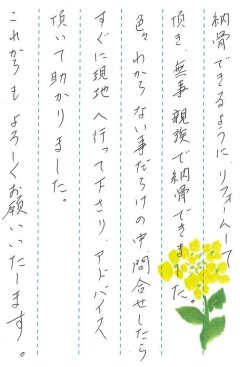 納骨できるように、リフォームして
頂き、無事親族で納骨できました。
色々わからない事だらけの中、問合せしたら
すぐに現地へ行って下さり、アドバイス
頂いて助かりました。
これからもよろしくお願いいたします。